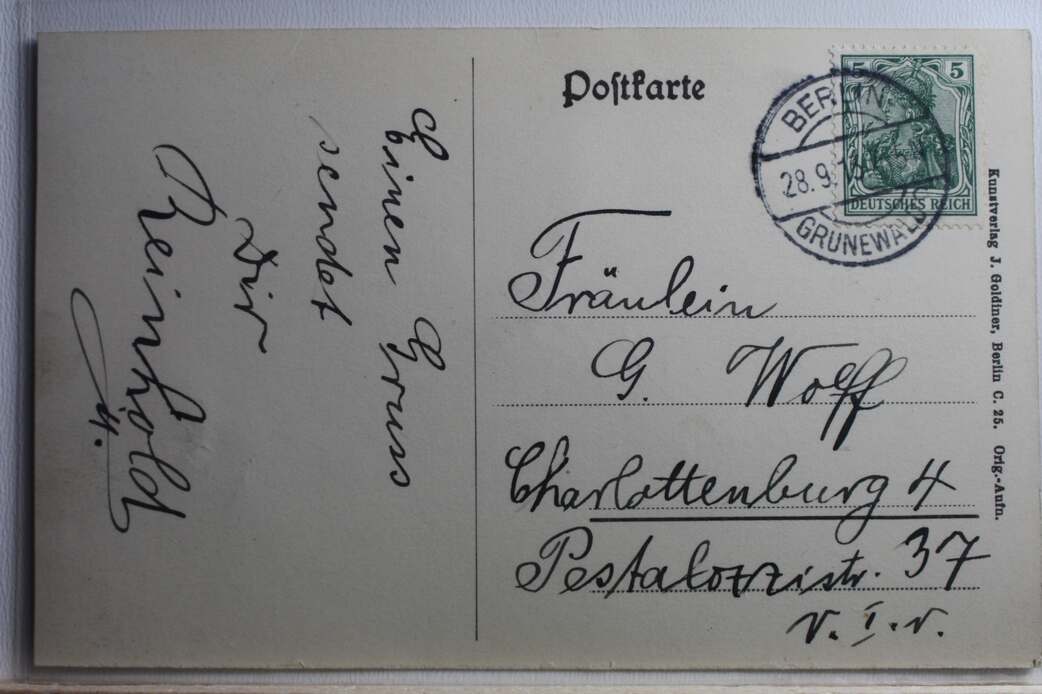 Einen Gruss
sendet
Dir
Reinhold
4.
Postkarte
5 5
DEUTSCHES REICH
BERLIN
28.9.
GRUNEWALD
Fräulein
G. Wolff
Charlottenburg 4
Pestalozzistr. 37
v. I. v.
Kunstverlag J. Goldiner, Berlin C. 25. Orig.-Aufn.